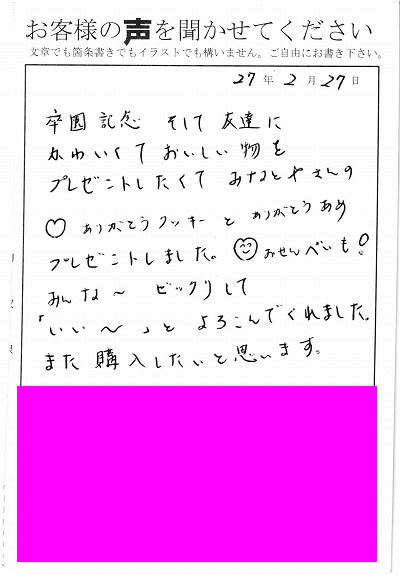 お客様の声を聞かせてください
文章でも箇条書きでもイラストでも構いません。ご自由にお書き下さい。
27年2月27日
卒園記念 そして 友達に
かわいくて おいしい物を
プレゼントしたくて みなとやさんの
♡ ありがとうクッキー と ありがとうあめ
プレゼントしました。 おせんべいも!
みんな〜 ビックリして
「いい〜」と よろこんでくれました。
また 購入したいと思います。